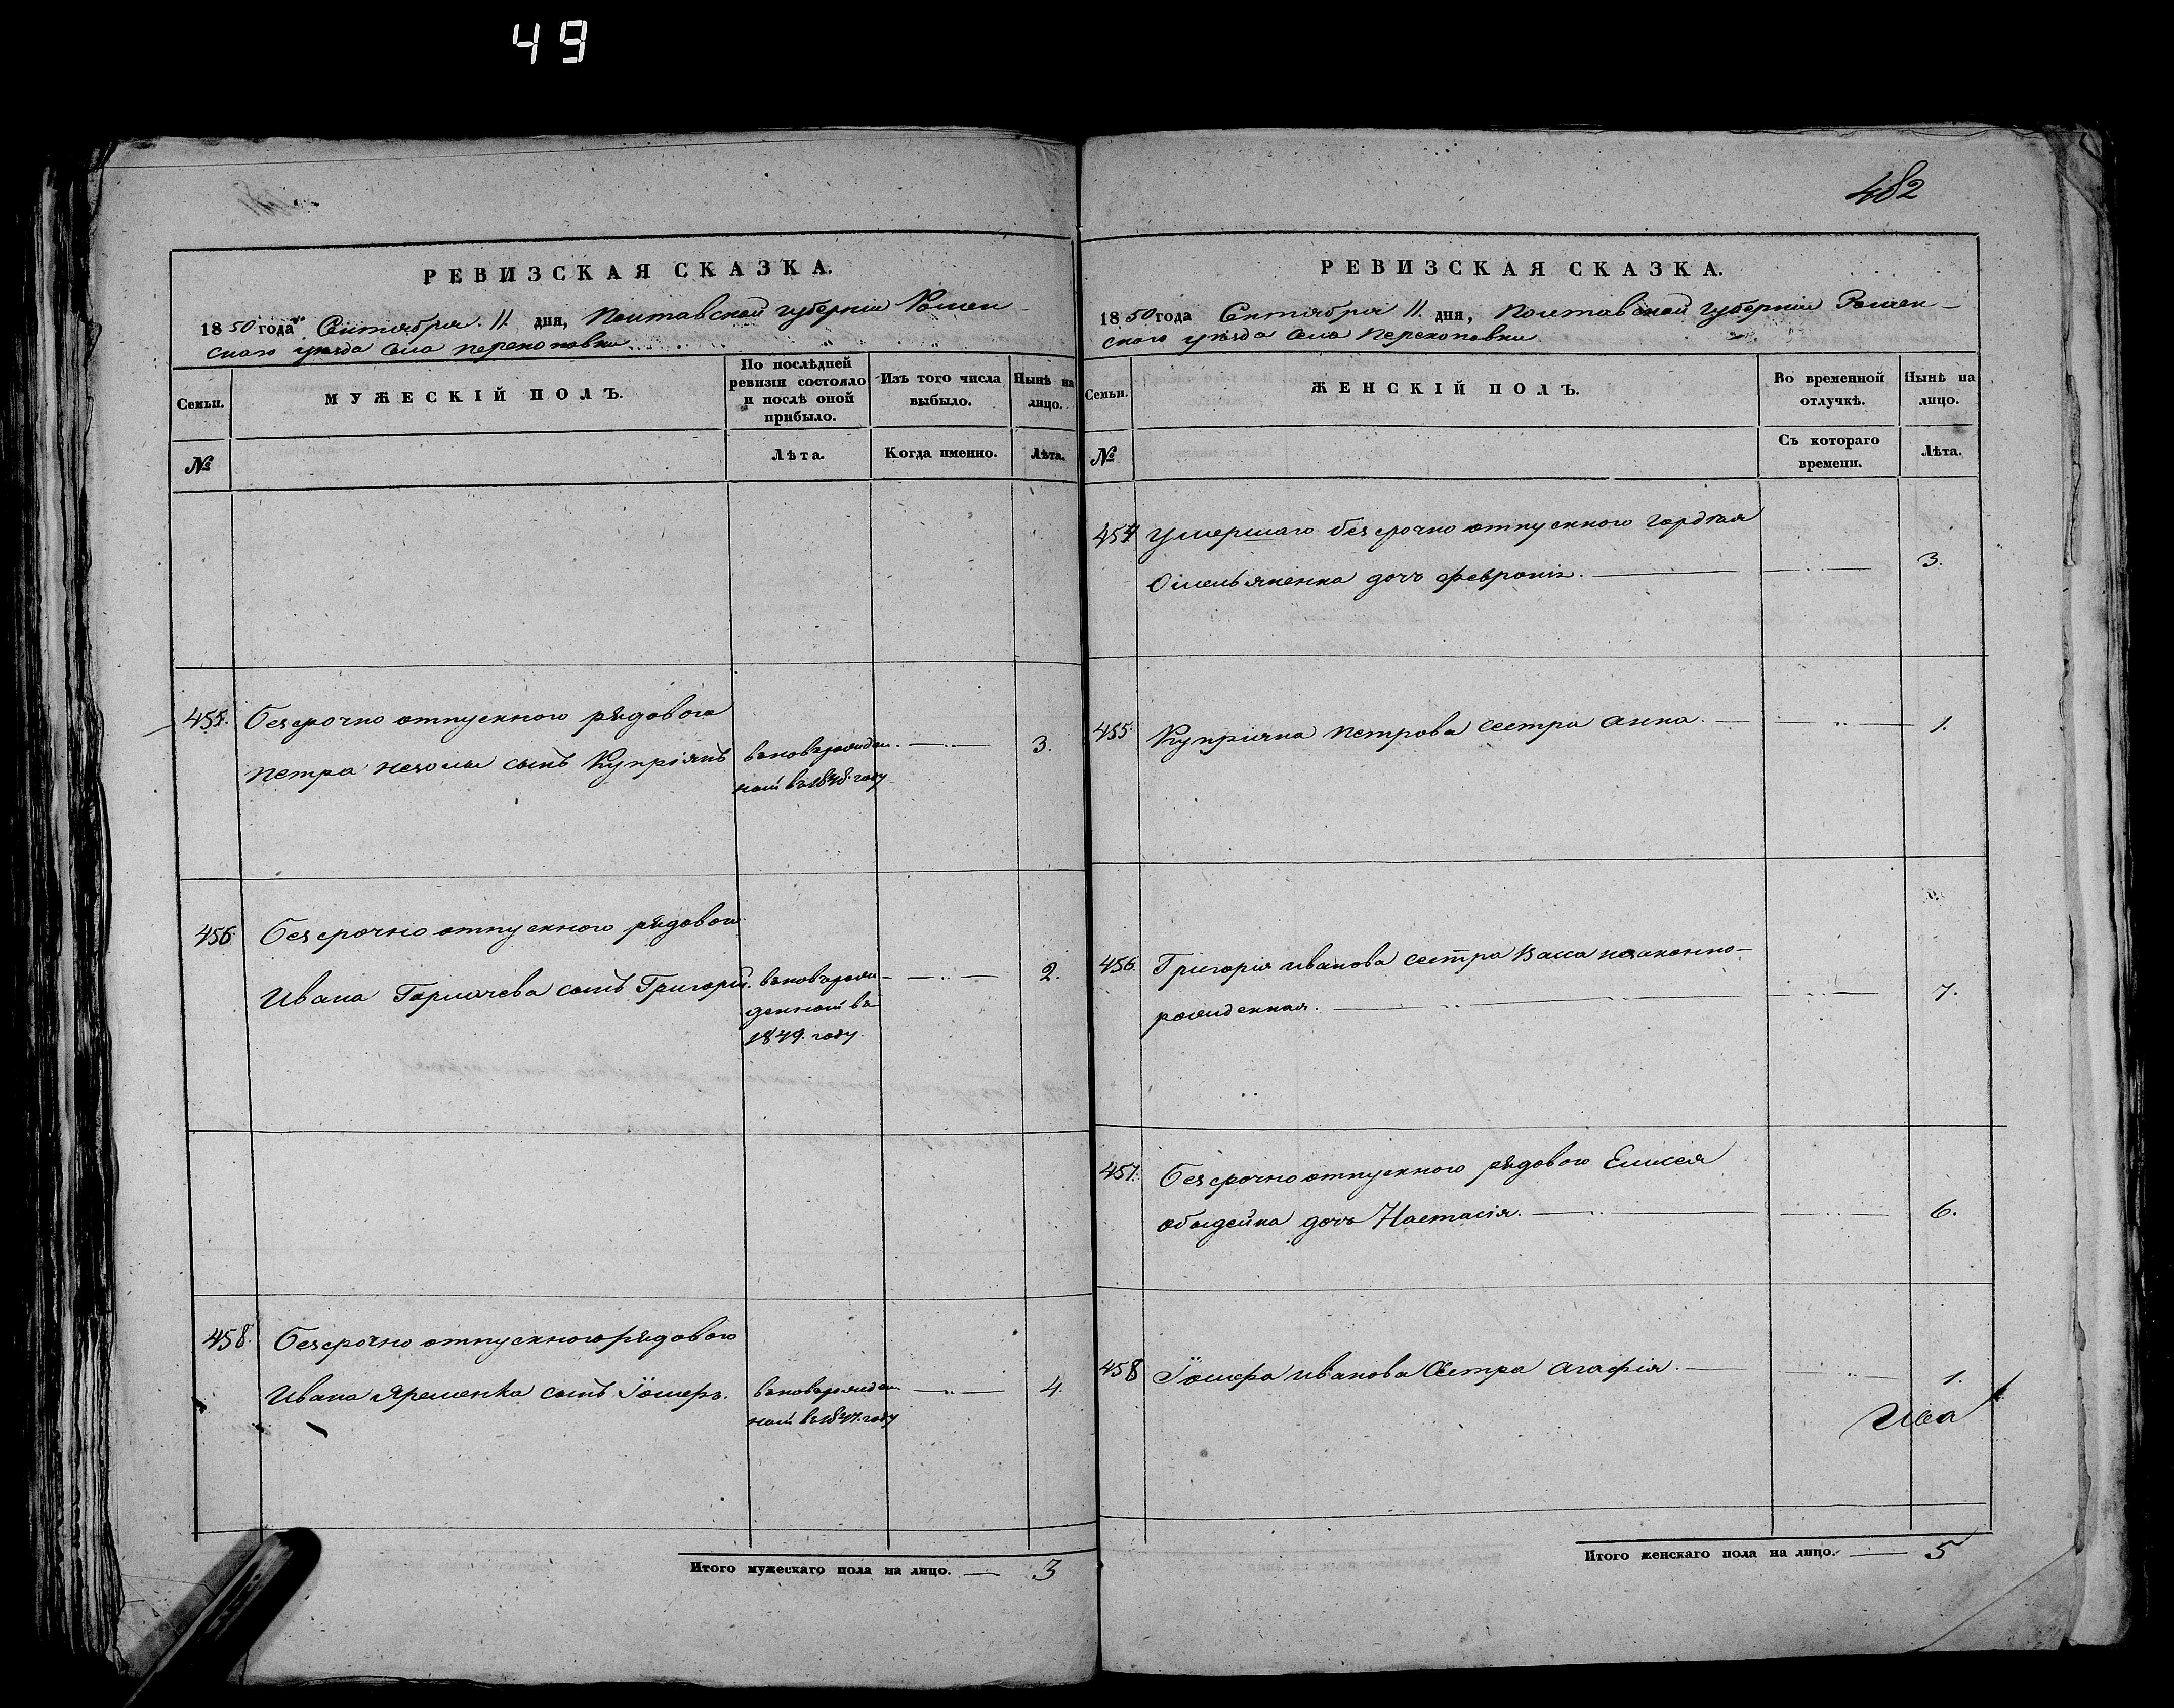 49
РЕВИЗСКАЯ СКАЗКА.
1850 года Сентября 11 дня, Полтавской губернии Ромен-
скаго уѣзда села Перекоповки
Семьи.
МУЖЕСКІЙ ПОЛЪ.
По послѣдней
ревизіи состояло
и послѣ оной
прибыло.
Изъ того числа
выбыло.
Нынѣ на
лицо.
№
Лѣта.
Когда именно.
Лѣта.
455. безсрочно отпускного рядового
Петра сынъ Купріянъ
вновьрожден-
ный въ 1848. году
3.
456 безсрочно отпускного рядового
Ивана Горкачева сынъ Григорій.
вновьрож-
денный въ
1849. году.
2.
458. безсрочно отпускного рядового
Ивана Яременка сынъ Іосифъ.
вновьрожден-
ный въ 1847. году
4.
Итого мужескаго пола на лицо. — 3
482
РЕВИЗСКАЯ СКАЗКА.
1850 года Сентября 11. дня, Полтавской губерніи Ромен-
скаго уѣзда села Перекоповки
Семьи.
ЖЕНСКІЙ ПОЛЪ.
Во временной
отлучкѣ.
Нынѣ на
лицо.
№
Съ котораго
времени.
Лѣта.
454 Умершаго безсрочно отпускного Гордѣя
Омельяненка дочь Февронія. 3.
455 Купріяна Петрова сестра Анна. 1.
456. Григорія Иванова сестра Васса незаконно-
рожденная. 7.
457. безсрочно отпускного рядового Елисея
дочь Настасія. 6.
458 Іосифа Иванова Сестра Агафія. 1.
Итого женскаго пола на лицо. — 5